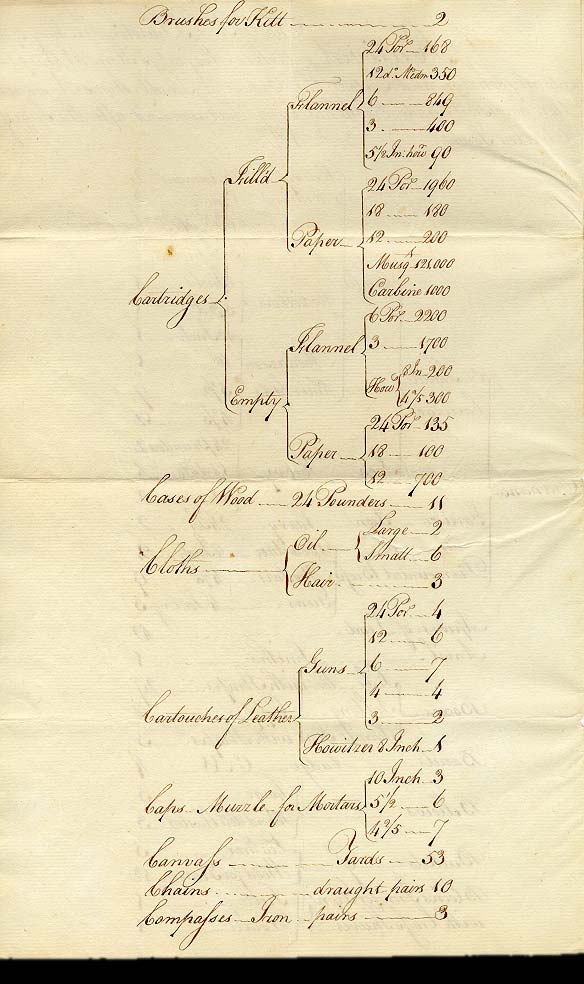 Brushes for Kitt 2
Cartridges Fill'd Flannel 24 Por. 168
12 do. Medm 350
6 849
3 400
5 1/2 In. how 90
Paper 24 Por. 1960
18 180
12 200
Musqt 121,000
Carbine 1000
Empty Flannel 6 Por. 2200
3 1700
How 8 In 200
4 2/5 300
Paper 24 Por. 135
18 100
12 700
Cases of Wood 24 Pounders 11
Cloths Oil Large 2
Small 6
Hair 3
Cartouches of Leather Guns 24 Por. 4
12 6
6 7
4 4
3 2
Howitzer 8 Inch 1
Caps Muzzle for Mortars 10 Inch 3
5 1/2 6
4 2/5 7
Canvass Yards 53
Chains draught pairs 10
Compasses Iron pairs 3